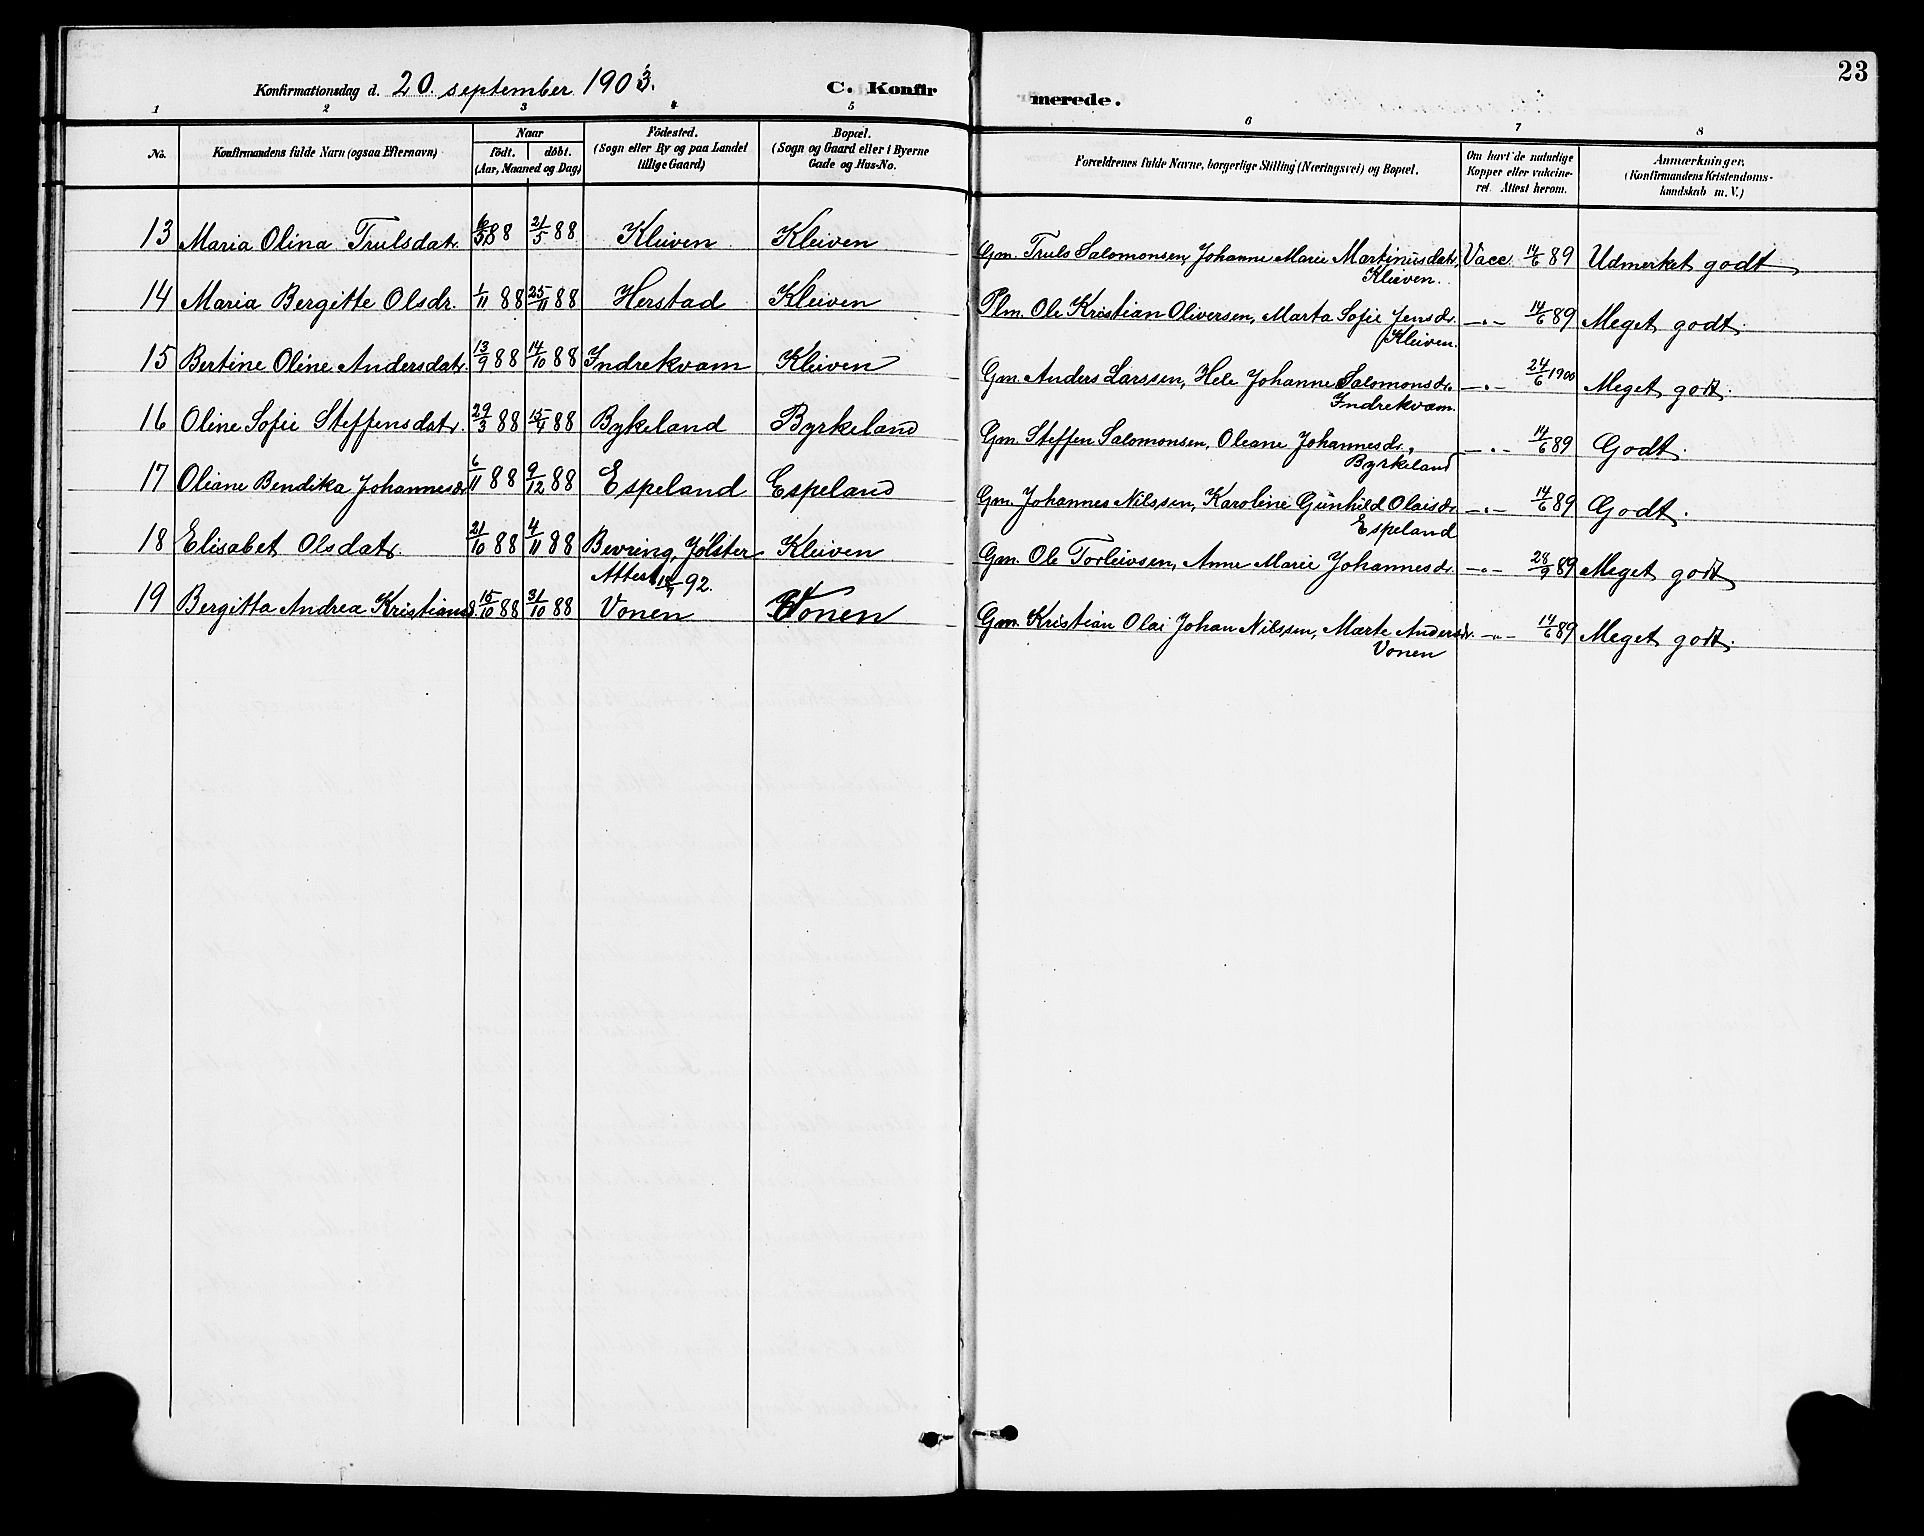 23
Konfirmationsdag d. 20. september 1903. C. Konfirmerede.
1 2 3 4 5 6 7 8
No. Konfirmandens fulde Navn (ogsaa Efternavn) Naar födt. döbt. (Aar, Maaned og Dag) Födested. (Sogn eller By og paa Landet tillige Gaard) Bopæl. (Sogn og Gaard eller i Byerne Gade og Hus-No. Forældrenes fulde Navne, borgerlige Stilling (Næringsvei) og Bopæl. Om havt de naturlige Kopper eller vakcineret. Attest herom. Anmærkninger. (Konfirmandens Kristendomskundskab m. V.)
13 Maria Olina Trulsdatr. 88 21/5 88 Kleiven Kleiven Gm. Truls Salomonsen, Johanne Marie Martinusdatr, Kleiven. Vacc. 14/6 89 Udmerket godt
14 Maria Bergitte Olsdr. 1/11 88 25/11 88 Herstad Kleiven Plm. Ole Kristian Oliversen, Marta Sofie Jensdr. Kleiven. —"— 14/6 89 Meget godt.
15 Bertine Oline Andersdatr. 13/9 88 14/10 88 Indrekvam Kleiven Gm. Anders Larssen, Hele Johanne Salomonsdr. Indrekvam. —"— 24/6 1900 Meget godt.
16 Oline Sofie Steffensdatr. 29/3 88 15/4 88 Bykeland Byrkeland Gm. Steffen Salomonsen, Oleane Johannesdr. Byrkeland —"— 14/6 89 Godt.
17 Oliane Bendika Johannesdr 6/11 88 9/12 88 Espeland Espeland Gm. Johannes Nilssen, Karoline Gunhild Olaisdr Espeland —"— 14/6 89 Godt.
18 Elisabet Olsdatr. 21/10 88 4/11 88 Bevring, Jölster Kleiven Gm. Ole Torleivsen, Anne Marie Johannesdr. —"— 28/9 89 Meget godt
Attest 92.
19 Bergitta Andrea Kristiansd. 15/10 88 31/10 88 Vonen Vonen Gm. Kristian Olai Johan Nilssen, Marte Andersdr. Vonen —"— 14/6 89 Meget godt.